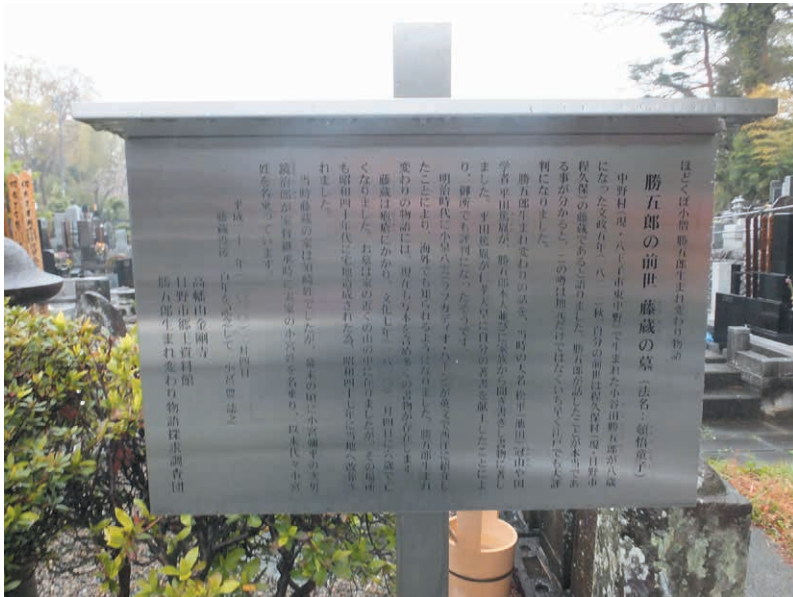 ほどくぼ小僧 勝五郎生まれ変わり物語
勝五郎の前世 藤蔵の墓（法名：頓悟童子）
中野村（現・八王子市東中野）で生まれた小谷田勝五郎が八歳
になった文政五年（一八二二）秋、自分の前世は程久保村（現・日野市
程久保）の藤蔵であると語りました。勝五郎が話したことが本当であ
る事が分かると、この噂は地元だけではなくいち早く江戸でも大評
判になりました。
勝五郎生まれ変わりの話を、当時の大名 松平（池田）冠山や国
学者 平田篤胤が、勝五郎本人並びに家族から聞き書きし書物に著し
ました。平田篤胤が上京し天皇に自分の著書を献上したことによ
り、御所でも評判になったそうです。
明治時代に小泉八雲（ラフカディオ・ハーン）が英文で西洋に紹介し
たことにより、海外でも知られるようになりました。勝五郎生まれ
変わりの物語には、現在も写本を含め多くの書物が存在します。
藤蔵は疱瘡にかかり、文化七年 月四日に六歳で亡
くなりました。お墓は家の近くの山の中に在りましたが、その場所
も昭和四十年代に宅地造成された為、昭和四十七年に当地へ改葬さ
れました。
当時藤蔵の家は須崎姓でしたが、幕末の頃に小宮彌平の次男
鏡治郎が家督継承時に実家の小宮姓を名乗り、以来代々小宮
姓を名乗っています。
平成 十 年 月四日
藤蔵没後 百年を記念して 小宮豊 誌之
高幡山金剛寺
日野市郷土資料館
勝五郎生まれ変わり物語探求調査団